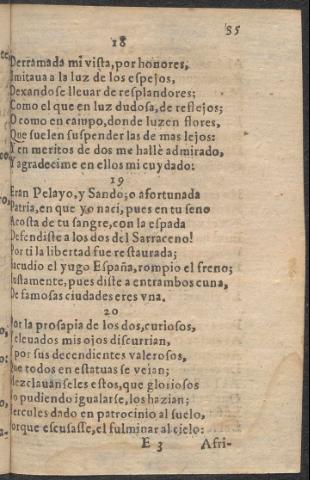 35
18
Derramada mi vista, por honores,
Imitaua a la luz de los espejos,
Dexandose lleuar de resplandores;
Como el que en luz dudosa, de reflejos;
O como en campo, donde luzen flores,
Que suelen suspender las de mas lejos:
Y en meritos de dos me hallè admirado,
Y agradecime en ellos mi cuydado:
19
Eran Pelayo, y Sando; o afortunada
Patria, en que yo naci, pues en tu seno
Acosta de tu sangre, con la espada
Defendiste a los dos del Sarraceno!
Por ti la libertad fue restaurada;
sacudio el yugo España, rompio el freno;
Iustamente, pues diste a entrambos cuna,
De famosas ciudades eres vna.
20
Por la prosapia de los dos, curiosos,
eleuados mis ojos discurrian,
por sus decendientes valerosos,
Que todos en estatuas se veian;
Mezclauanseles estos, que gloriosos
o pudiendo igualarse, los hazian;
Hercules dado en patrocinio al suelo,
Porque escusasse, el fulminar al cielo:
E 3 Afri-